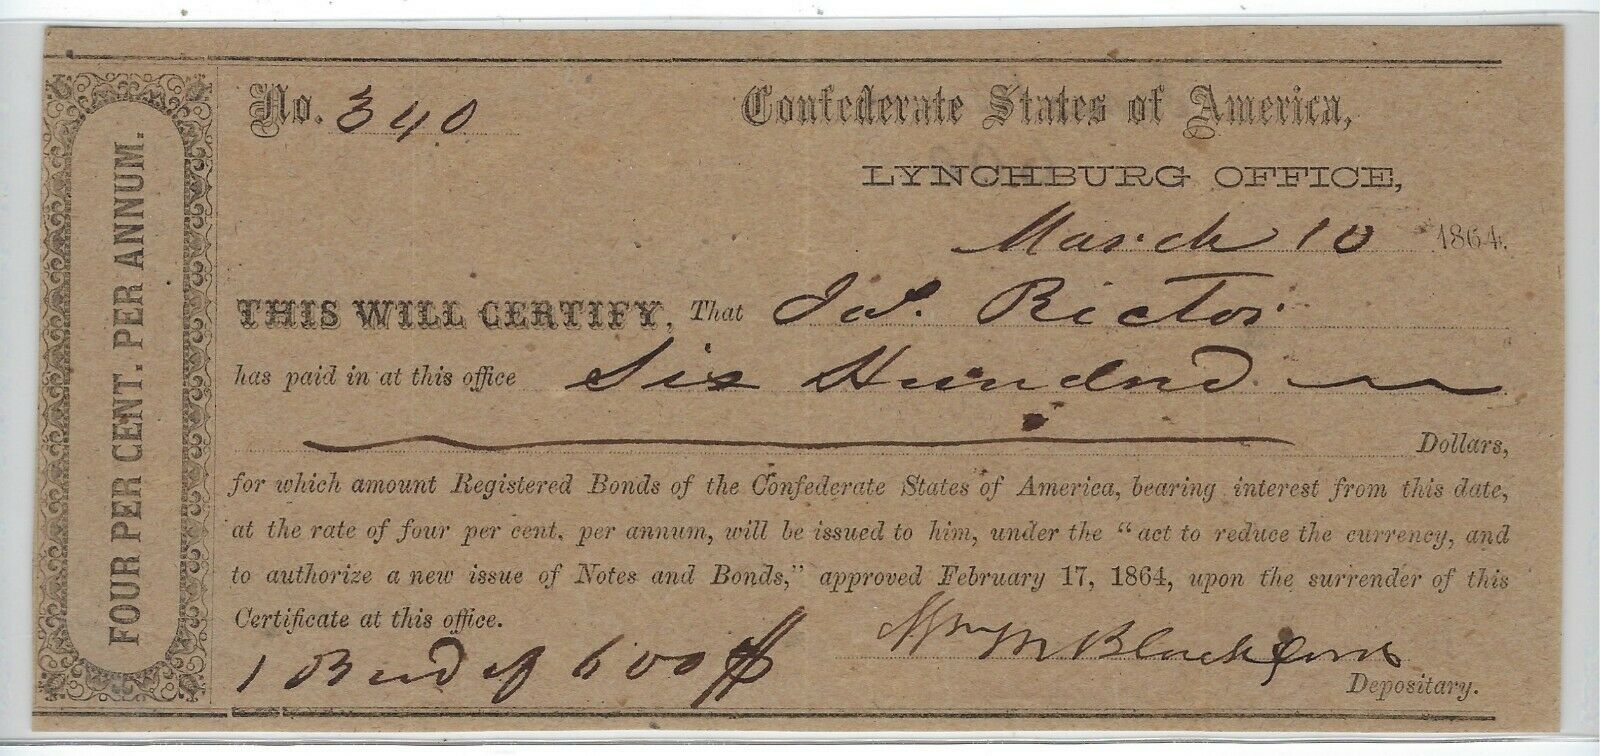 FOUR PER CENT. PER ANNUM.
No. 340
Confederate States of America,
LYNCHBURG OFFICE,
March 10 1864.
THIS WILL CERTIFY, That Jas. Rector
has paid in at this office Six Hundred
Dollars,
for which amount Registered Bonds of the Confederate States of America, bearing interest from this date,
at the rate of four per cent. per annum, will be issued to him, under the "act to reduce the currency, and
to authorize a new issue of Notes and Bonds," approved February 17, 1864, upon the surrender of this
Certificate at this office.
1 Bond of 600 $
Wm M Blackford
Depositary.